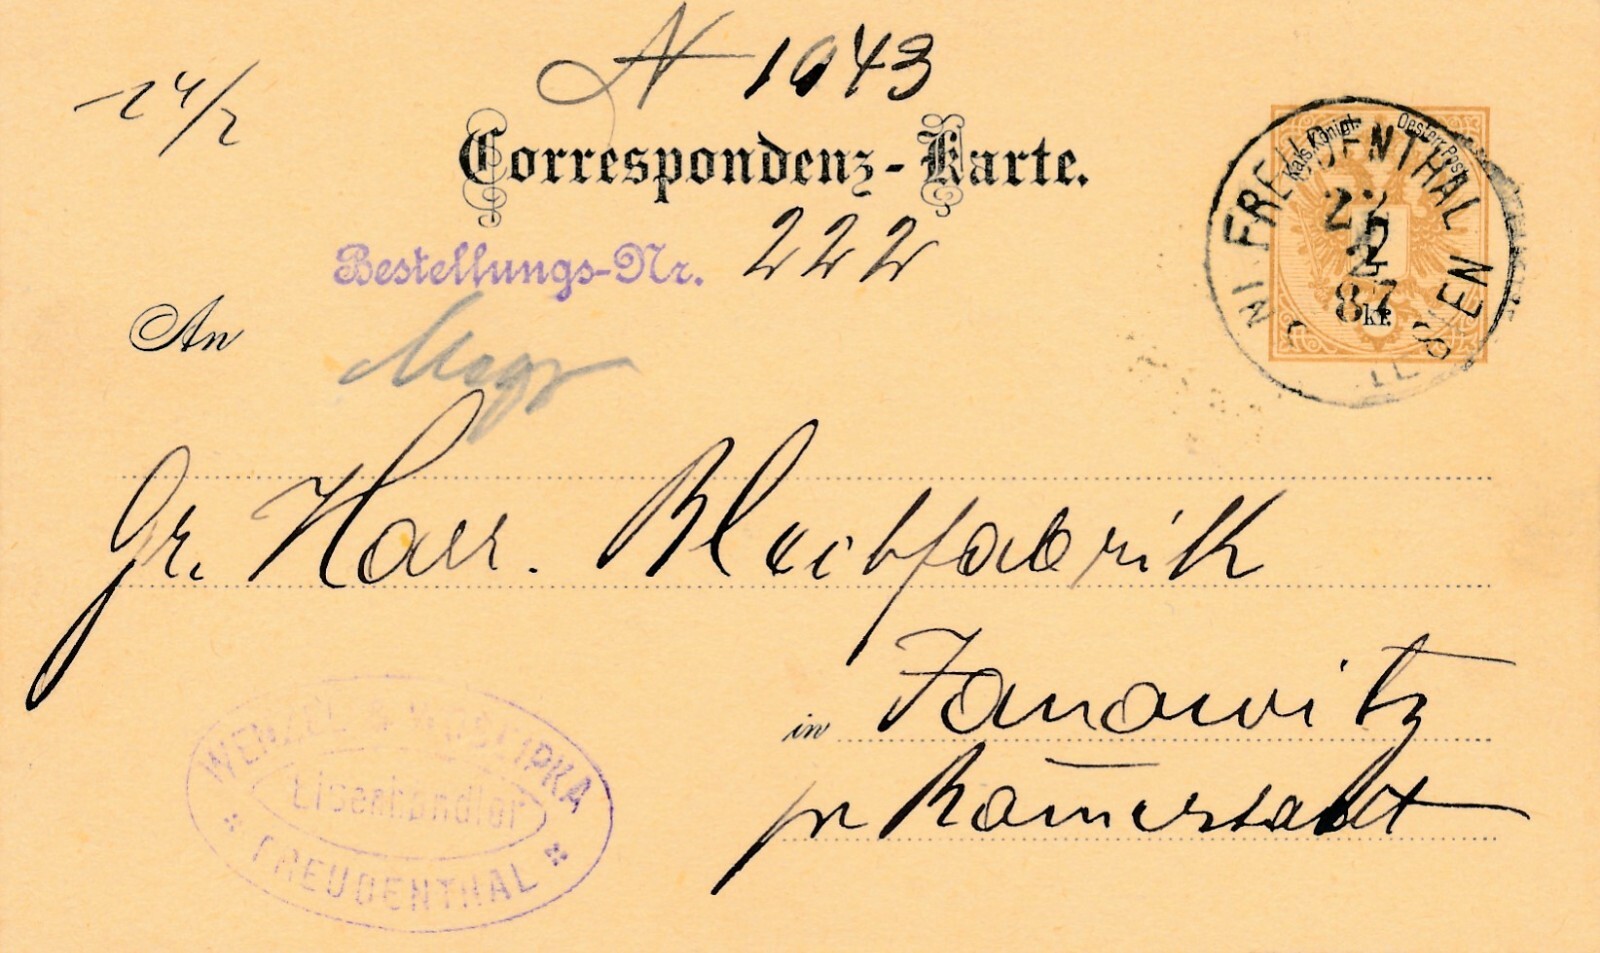 N 1043
24/2
Correspondenz-Karte.
Bestellungs-Nr. 222
Kais. Königl. Oesterr. Post
2 kr.
FREUDENTHAL IN SCHLESIEN
22
2
87
An
Gr. Harr. Blechfabrik
in Janowitz
pr Römerstadt
WENZEL
Eisenhändler
* FREUDENTHAL *